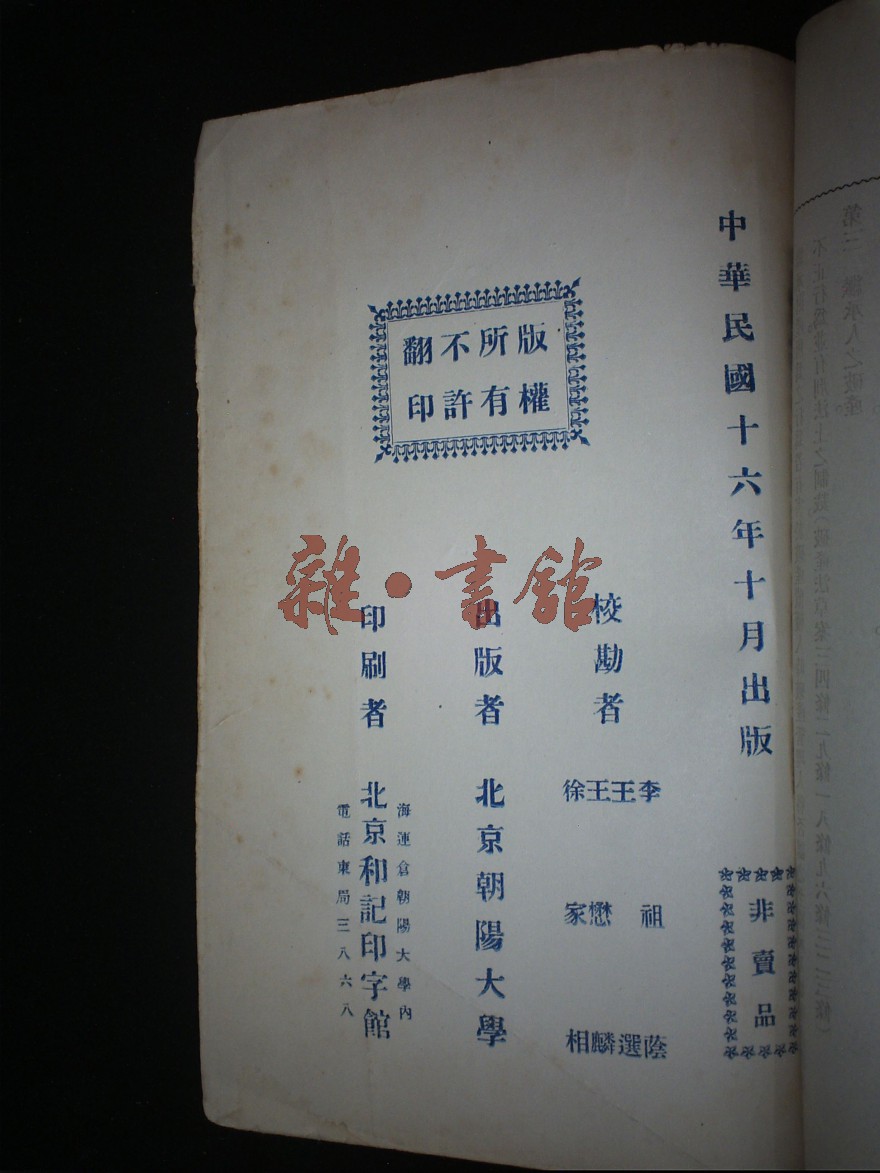 中華民國十六年十月出版
非賣品
版權
所有
不許
翻印
校勘者
李祖蔭
王選
王懋麟
徐家相
出版者 北京朝陽大學
印刷者 北京和記印字館
海運倉朝陽大學內
電話東局三八六八
雜·書館
第三 繼承人之破產